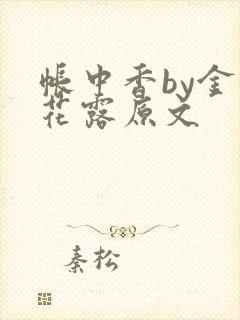 帐中香by金
花露原文
秦松